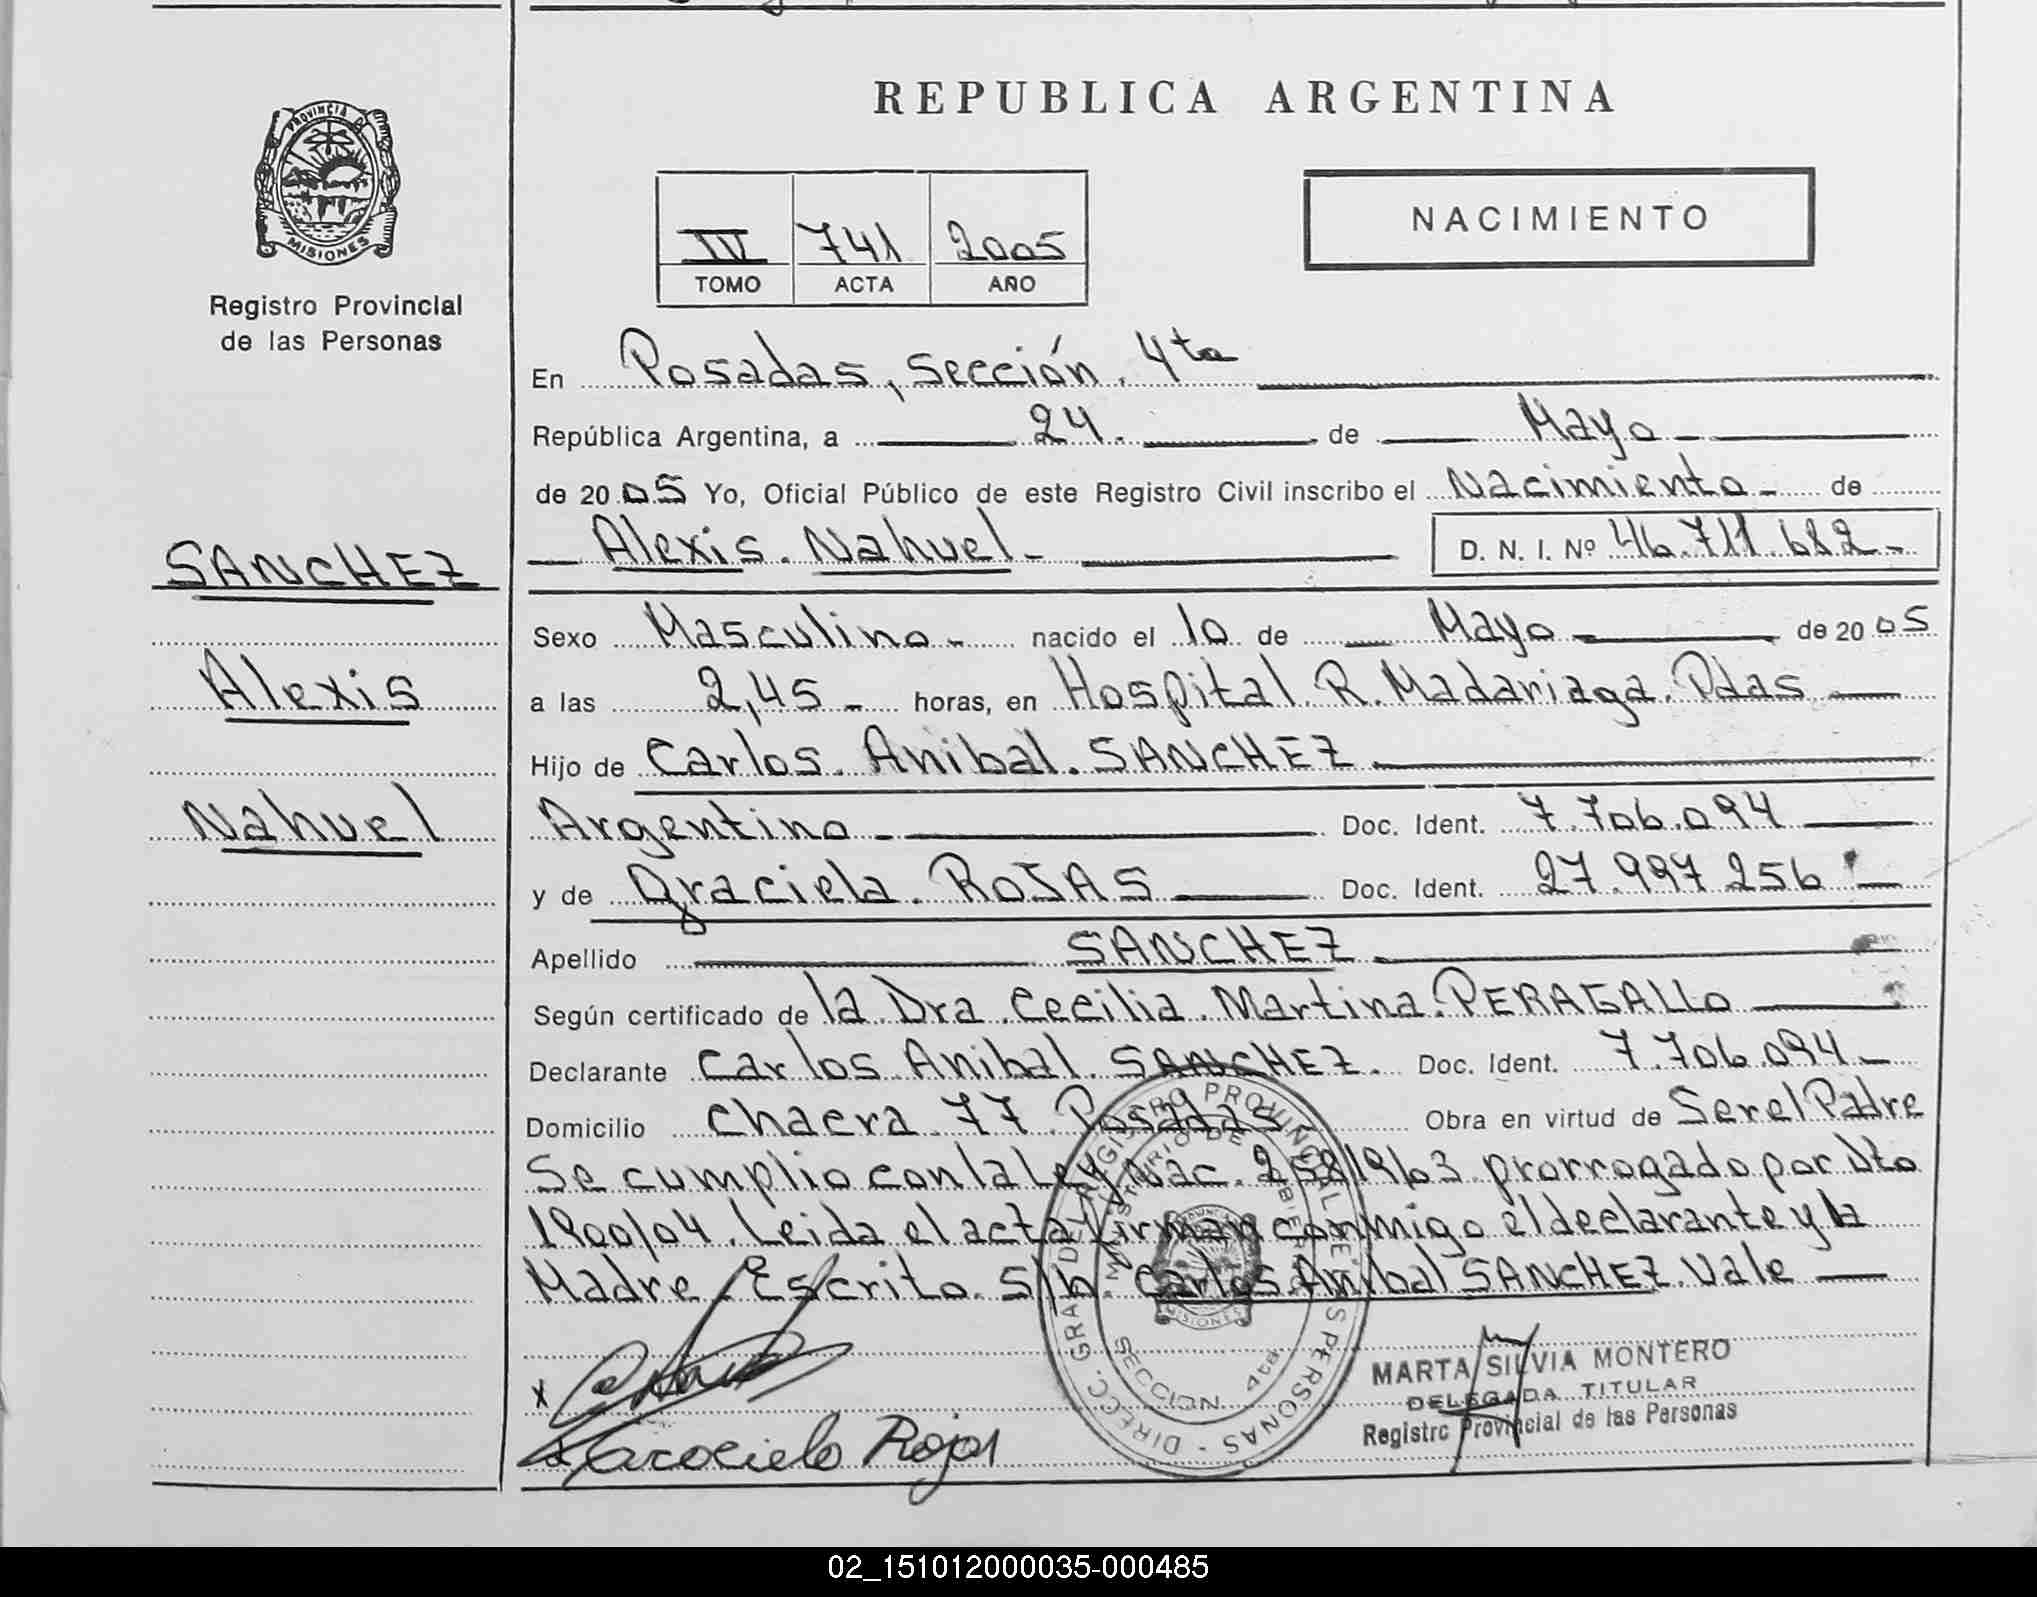 REPUBLICA ARGENTINA
PROVINCIA D
MISIONES
Registro Provincial
de las Personas
NACIMIENTO
IV 741 2005
TOMO ACTA AÑO
En Posadas, Sección. 4ta
República Argentina, a 24. de Mayo
de 2005 Yo, Oficial Público de este Registro Civil inscribo el Nacimiento - de
Alexis. Nahuel - D. N. I. Nº 46.711.682 -
SANCHEZ
Alexis
Nahuel
Sexo Masculino - nacido el 10 de Mayo de 2005
a las 2,45 - horas, en Hospital. R. Madariaga. Pdas
Hijo de Carlos. Anibal. SANCHEZ
Argentino Doc. Ident. 7.706.094
y de Graciela. ROJAS Doc. Ident. 27.997.256
Apellido SANCHEZ
Según certificado de la Dra. Cecilia. Martina. PERAGALLO
Declarante Carlos Anibal. SANCHEZ. Doc. Ident. 7.706.094 -
Domicilio Chacra 77 Posadas - Obra en virtud de Ser el Padre
Se cumplio con la Ley Nac. 25819/03 prorrogado por Dto
1900/04. Leida el acta firman conmigo el declarante y la
Madre. Escrito. S/b. Carlos Anibal SANCHEZ. Vale
DIREC. GRAL DEL REGISTRO PROVINCIAL DE LAS PERSONAS
MINISTERIO DE GOBIERNO
SECCION 4ta
MISIONES
MARTA SILVIA MONTERO
DELEGADA TITULAR
Registro Provincial de las Personas
x
Gracielo Rojas
02_151012000035-000485